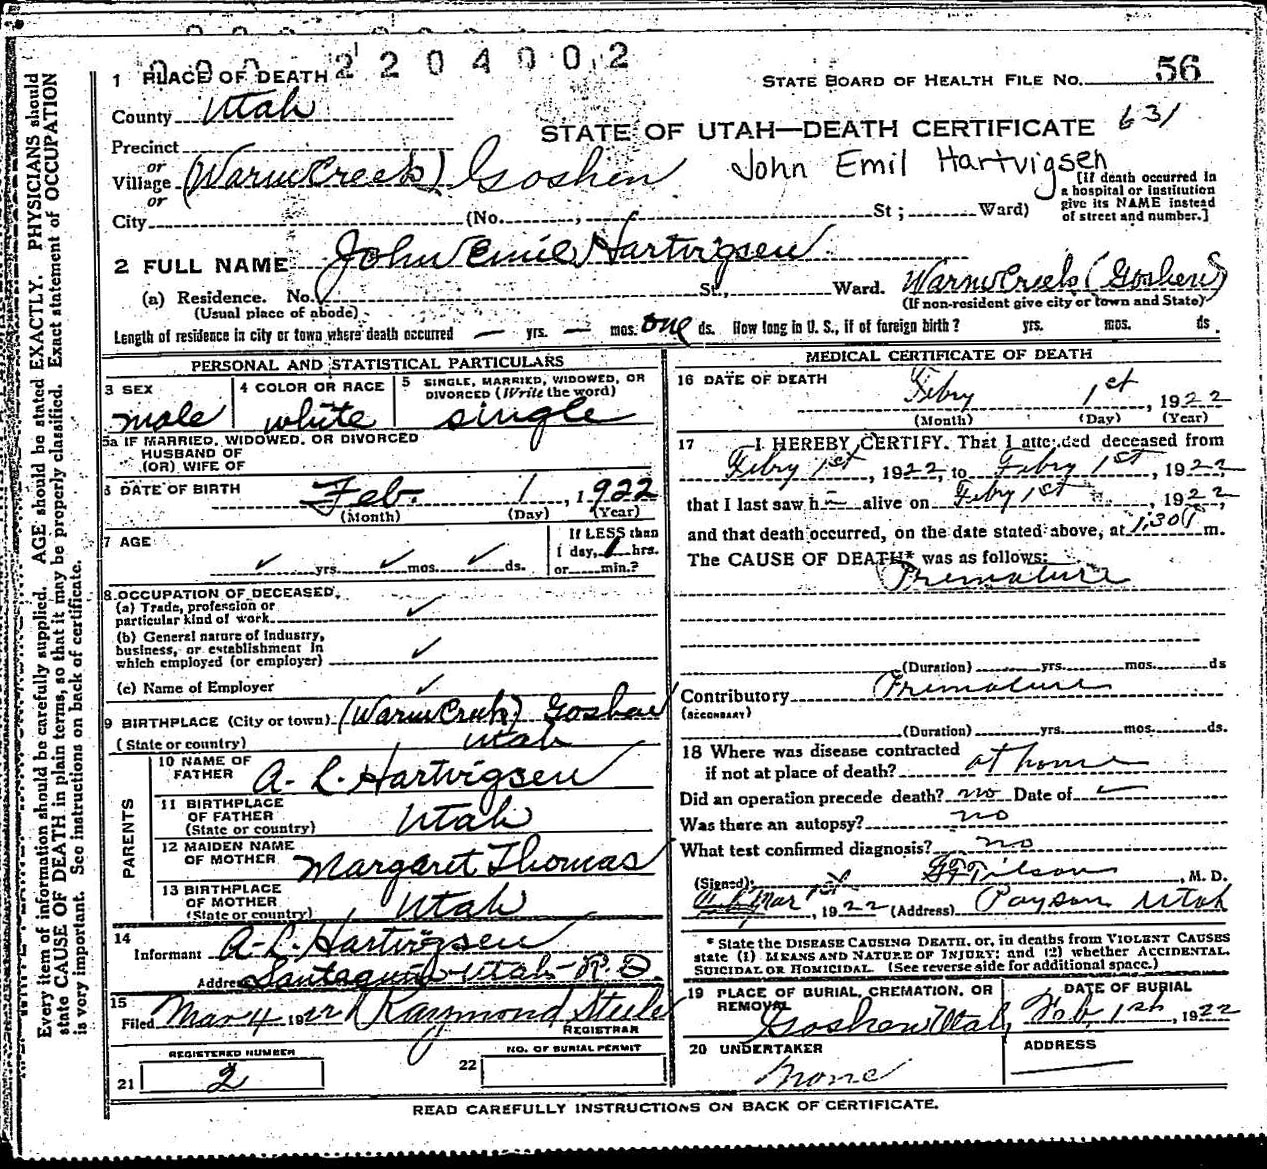 2204002
1 PLACE OF DEATH
STATE BOARD OF HEALTH FILE NO. 56
County Utah
STATE OF UTAH—DEATH CERTIFICATE 631
Precinct
or
Village (Warm Creek) Goshen John Emil Hartvigsen
or
[If death occurred in a hospital or institution give its NAME instead of street and number.]
City (No. , St ; Ward)
2 FULL NAME John Emil Hartvigsen
(a) Residence. No. St., Ward. Warm Creek (Goshen)
(Usual place of abode) (If non-resident give city or town and State)
Length of residence in city or town where death occurred — yrs. — mos. one ds. How long in U. S., if of foreign birth? yrs. mos. ds.
PERSONAL AND STATISTICAL PARTICULARS
3 SEX
male
4 COLOR OR RACE
white
5 SINGLE, MARRIED, WIDOWED, OR DIVORCED (Write the word)
single
5a IF MARRIED, WIDOWED, OR DIVORCED
HUSBAND OF
(OR) WIFE OF
6 DATE OF BIRTH Feb. 1, 1922
(Month) (Day) (Year)
7 AGE
✓ yrs. ✓ mos. ✓ ds.
If LESS than
1 day, 1 hrs.
or min.?
8 OCCUPATION OF DECEASED.
(a) Trade, profession or
particular kind of work ✓
(b) General nature of Industry,
business, or establishment in
which employed (or employer) ✓
(c) Name of Employer ✓
9 BIRTHPLACE (City or town) (Warm Creek) Goshen
(State or country) Utah
PARENTS
10 NAME OF
FATHER A. L. Hartvigsen
11 BIRTHPLACE
OF FATHER
(State or country) Utah
12 MAIDEN NAME
OF MOTHER Margaret Thomas
13 BIRTHPLACE
OF MOTHER
(State or country) Utah
14
Informant A. L. Hartvigsen
Address Santaquin Utah R. D.
15
Filed Mar 4 1922 Raymond Steele
REGISTRAR
REGISTERED NUMBER
21 2
NO. OF BURIAL PERMIT
22
MEDICAL CERTIFICATE OF DEATH
16 DATE OF DEATH
Febry 1st, 1922
(Month) (Day) (Year)
17 I HEREBY CERTIFY, That I attended deceased from
Febry 1st, 1922, to Febry 1st, 1922
that I last saw h— alive on Febry 1st, 1922,
and that death occurred, on the date stated above, at 1.30 P m.
The CAUSE OF DEATH* was as follows:
Premature
(Duration) yrs. mos. ds
Contributory Premature
(SECONDARY)
(Duration) yrs. mos. ds.
18 Where was disease contracted
if not at place of death? at home
Did an operation precede death? no Date of ✓
Was there an autopsy? no
What test confirmed diagnosis? no
(Signed) Tilson, M. D.
Mar 1st, 1922 (Address) Payson Utah
* State the DISEASE CAUSING DEATH, or, in deaths from VIOLENT CAUSES
state (1) MEANS AND NATURE OF INJURY; and (2) whether ACCIDENTAL,
SUICIDAL OR HOMICIDAL. (See reverse side for additional space.)
19 PLACE OF BURIAL, CREMATION, OR
REMOVAL
Goshen Utah
DATE OF BURIAL
Feb. 1st, 1922
20 UNDERTAKER
None
ADDRESS
READ CAREFULLY INSTRUCTIONS ON BACK OF CERTIFICATE.
Every item of information should be carefully supplied. AGE should be stated EXACTLY. PHYSICIANS should
state CAUSE OF DEATH in plain terms, so that it may be properly classified. Exact statement of OCCUPATION
is very important. See instructions on back of certificate.